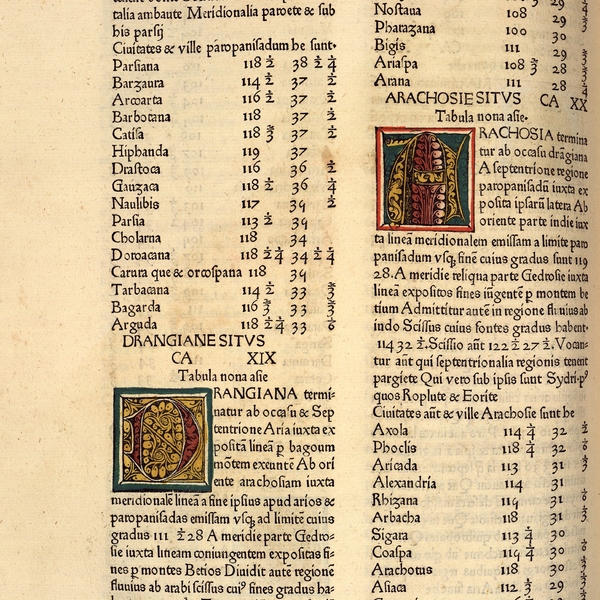 talia ambaute Meridionalia paroete & sub
his parsij
Ciuitates & ville paropanisadum he sunt.
Parsiana 118 ½ 38 ½ ¼
Barzaura 114 ½ 37 ½
Artoarta 116 ½ 37 ½
Barbotana 118 37 ½
Catisa 118 ⅔ 37 ½
Hiphanda 119 37
Drastoca 116 36 ½
Gauzaca 118 ½ 36 ¼
Naulibis 117 34 ½
Parsia 113 ½ 34
Cholarna 118 34
Dorocana 118 ½ ¼ 34 ½ ¼
Carura que & orcospana 118 34
Tarbacana 114 ½ 33 ⅔
Bagarda 116 ⅔ 33 ⅔
Arguda 118 ½ ¼ 33
DRANGIANE SITVS
CA XIX
Tabula nona asie
DRANGIANA termi-
natur ab occasu & Sep
tentrione Aria iuxta ex
positā lineā p bagoum
mōtem exeuntē Ab ori
ente arachosiam iuxta
meridionalē lineā a fine ipsius apud arios &
paropanisadas emissam vsq; ad limitē cuius
gradus 111 ½ 28 A meridie parte Gedro-
sie iuxta lineam coniungentem expositas fi-
nes p montes Betios Diuidit autē regionē
fluuius ab arabi scissus cui⁹ fines gradus ha-
Nostaua 108 29
Pharazana 100 30
Bigis 111 29
Ariaspa 108 ⅔ 28 ⅔
Arana 111 28
ARACHOSIE SITVS CA XX
Tabula nona asie.
ARACHOSIA termina
tur ab occasu drāgiana
A septentrione regione
paropanisadū iuxta ex
posita ipsarū latera Ab
oriente parte indie iux
ta lineā meridionalem emissam a limite paro
panisadum vsq; finē cuius gradus sunt 119
28. A meridie reliqua parte Gedrosie iuxta
lineā expositos fines iūgentē p montem be
tium Admittitur autē in regione fluuius ab
indo Scissus cuius fontes gradus habent.
114 32 ½. Scissio aūt 122 ½ 27 ½. Vocan-
tur aūt qui septentrionalia regionis tenent
pargiete Qui vero sub ipsis sunt Sydri p⁹
quos Roplute & Eorite
Ciuitates aūt & ville Arachosie sunt he
Axola 114 ¼ 32
Phoclis 118 ¼ 32
Aricada 113 31 ⅓
Alexandria 114 31
Rhizana 114 31
Arbacha 118 31 ⅓
Sigara 113 ¼ 30
Coaspa 114 ¼ 30
Arachotus 118 30 ⅓
Asiaca 112 ⅓ 29